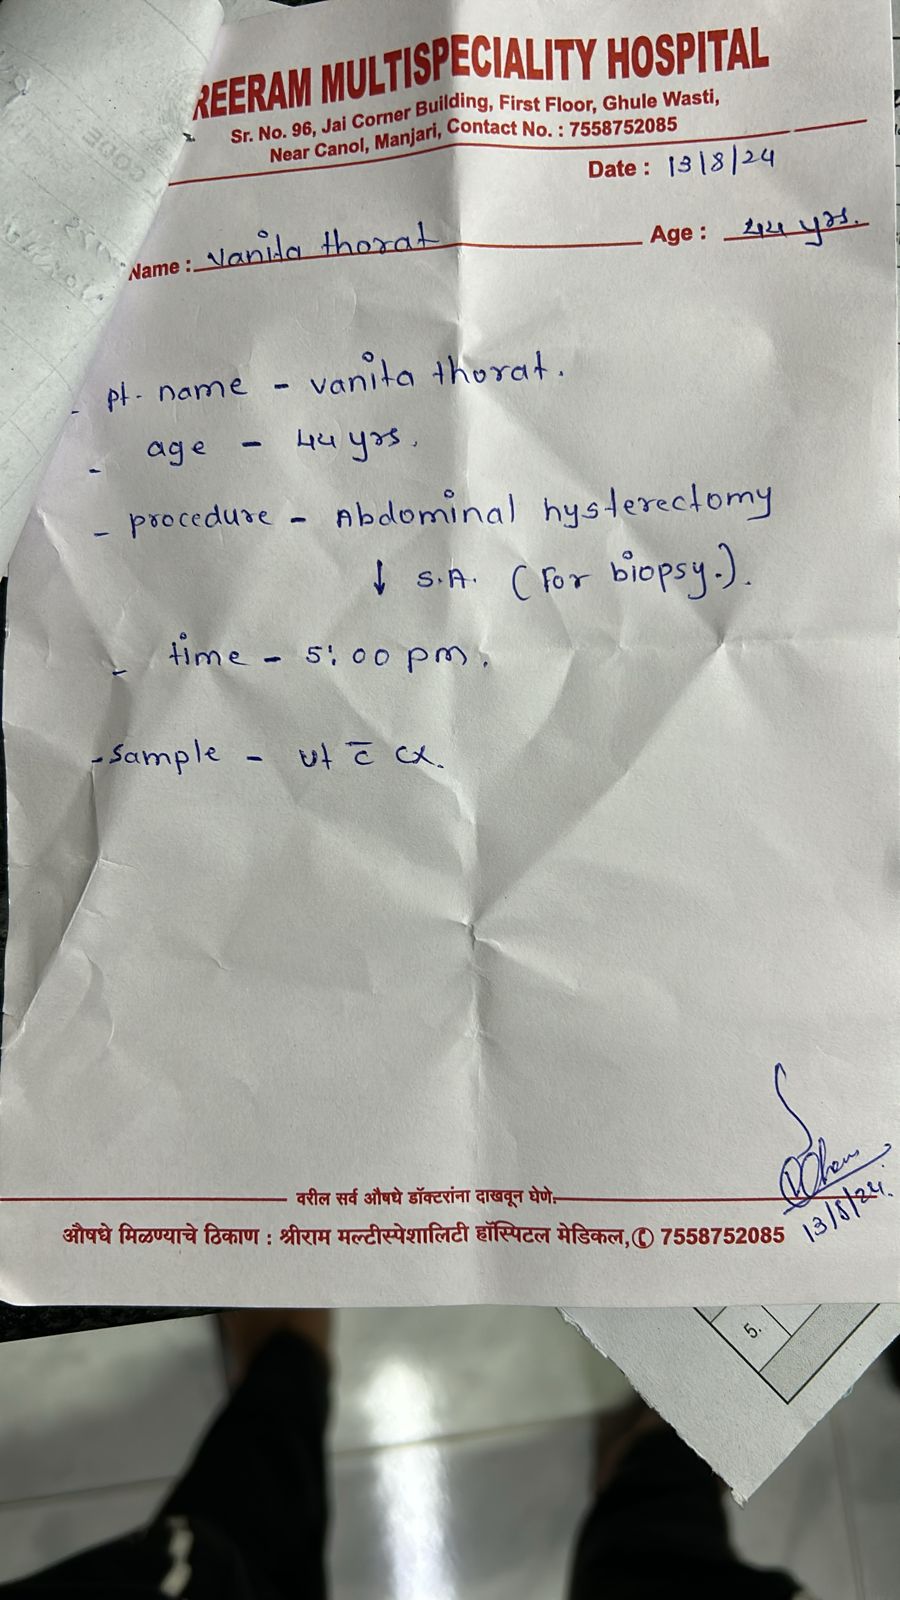 REERAM MULTISPECIALITY HOSPITAL
Sr. No. 96, Jai Corner Building, First Floor, Ghule Wasti,
Near Canol, Manjari, Contact No. : 7558752085
Date : 13/8/24
Name : vanita thorat Age : 44 yrs.
- pt. name - vanita thorat.
- age - 44 yrs.
- procedure - Abdominal hysterectomy
↓ S.A. (For biopsy.).
- time - 5:00 pm.
- sample - ut c̄ cx.
13/8/24.
वरील सर्व औषधे डॉक्टरांना दाखवून घेणे.
औषधे मिळण्याचे ठिकाण : श्रीराम मल्टीस्पेशालिटी हॉस्पिटल मेडिकल, ✆ 7558752085
5.